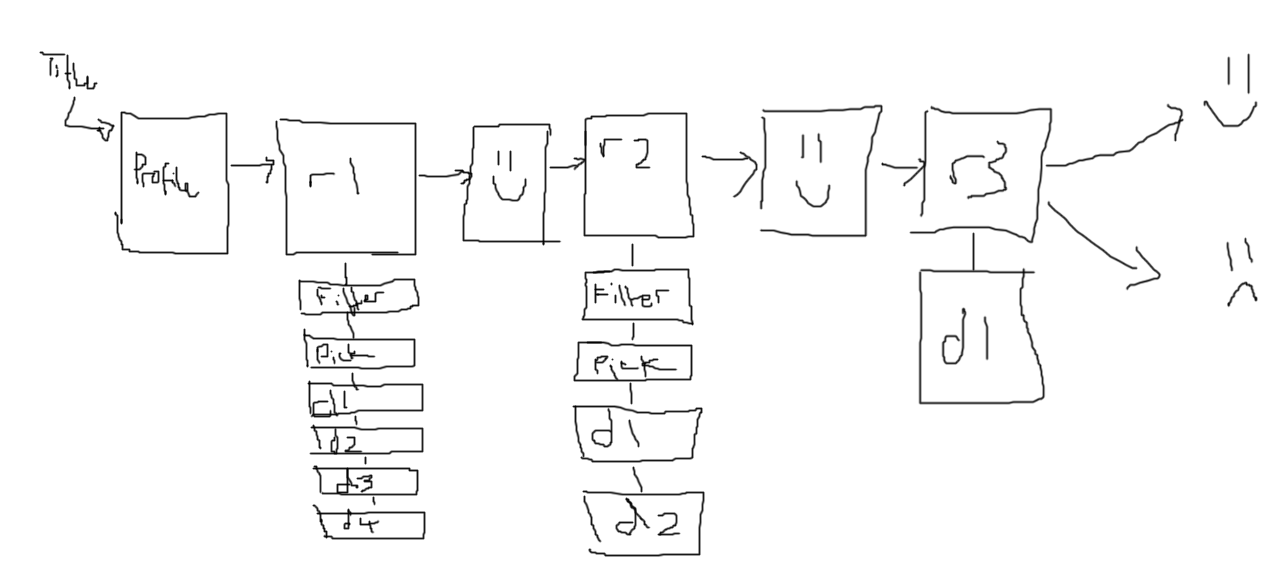 Title
Profile
r1
r2
r3
Filter
Pick
d1
d2
d3
d4
Filter
Pick
d1
d2
d1